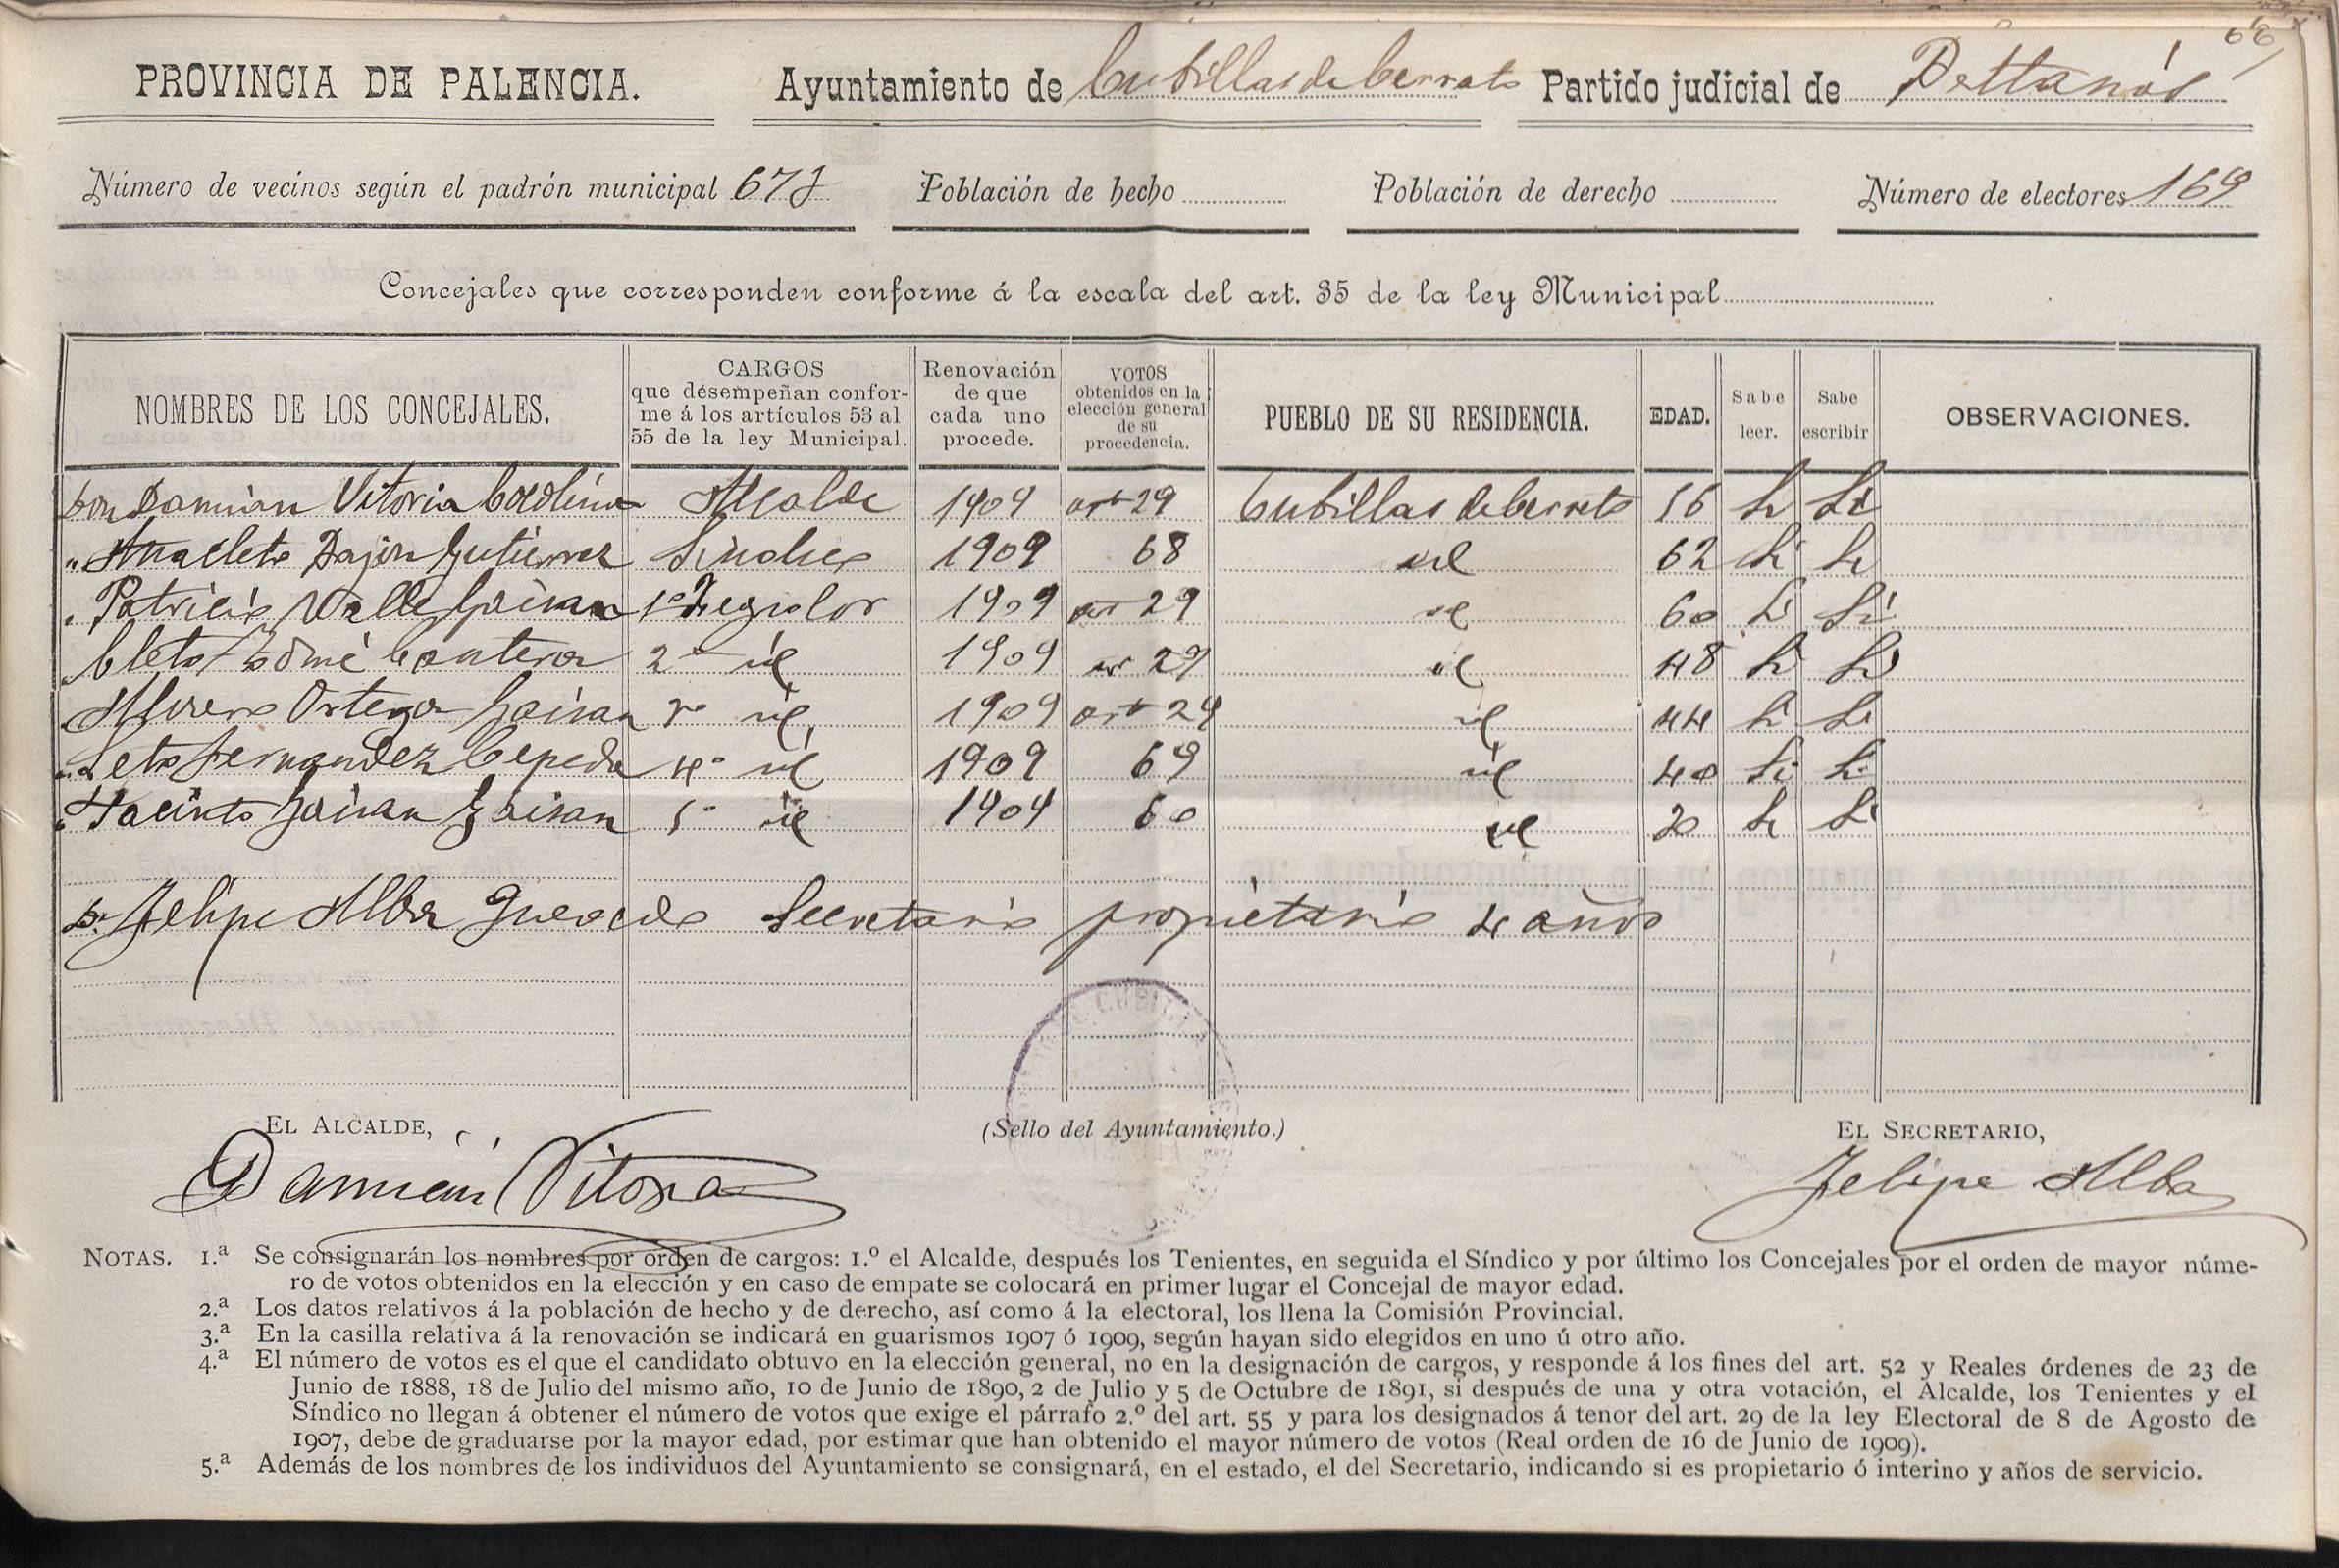 66
PROVINCIA DE PALENCIA. Ayuntamiento de Cubillas de Cerrato Partido judicial de Baltanás
Número de vecinos según el padrón municipal 673 Población de hecho Población de derecho Número de electores 169
Concejales que corresponden conforme á la escala del art. 35 de la ley Municipal
NOMBRES DE LOS CONCEJALES. CARGOS que desempeñan conforme á los artículos 53 al 55 de la ley Municipal. Renovación de que cada uno procede. VOTOS obtenidos en la elección general de su procedencia. PUEBLO DE SU RESIDENCIA. EDAD. Sabe leer. Sabe escribir OBSERVACIONES.
Don Damian Vitoria Alcalde 1909 art 29 Cubillas de Cerrato 56 Si Si
" Anacleto Gutierrez Sindico 1909 68 id 62 Si Si
" Patricio Valle Gaisan 1º Regidor 1909 art 29 id 60 Si Si
" Cleto Tomé Cantera 2º id 1909 art 29 id 48 Si Si
" Ortega Gaisan 3º id 1909 art 29 id 44 Si Si
" Fernandez Cepeda 4º id 1909 69 id 40 Si Si
" Jacinto Gaisan Gaisan 5º id 1909 60 id 30 Si Si
Dn Felipe Alba Secretario propietario 4 años
EL ALCALDE, (Sello del Ayuntamiento.) EL SECRETARIO,
Damián Vitoria Felipe Alba
NOTAS. 1.ª Se consignarán los nombres por orden de cargos: 1.º el Alcalde, después los Tenientes, en seguida el Síndico y por último los Concejales por el orden de mayor núme-
ro de votos obtenidos en la elección y en caso de empate se colocará en primer lugar el Concejal de mayor edad.
2.ª Los datos relativos á la población de hecho y de derecho, así como á la electoral, los llena la Comisión Provincial.
3.ª En la casilla relativa á la renovación se indicará en guarismos 1907 ó 1909, según hayan sido elegidos en uno ú otro año.
4.ª El número de votos es el que el candidato obtuvo en la elección general, no en la designación de cargos, y responde á los fines del art. 52 y Reales órdenes de 23 de
Junio de 1888, 18 de Julio del mismo año, 10 de Junio de 1890, 2 de Julio y 5 de Octubre de 1891, si después de una y otra votación, el Alcalde, los Tenientes y el
Síndico no llegan á obtener el número de votos que exige el párrafo 2.º del art. 55 y para los designados á tenor del art. 29 de la ley Electoral de 8 de Agosto de
1907, debe de graduarse por la mayor edad, por estimar que han obtenido el mayor número de votos (Real orden de 16 de Junio de 1909).
5.ª Además de los nombres de los individuos del Ayuntamiento se consignará, en el estado, el del Secretario, indicando si es propietario ó interino y años de servicio.